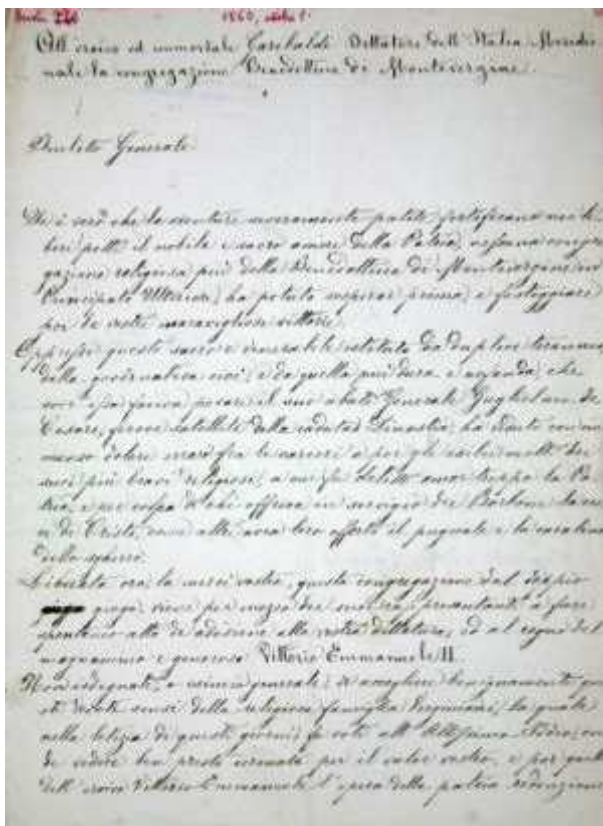 1860, 
All'eroico ed immortale Garibaldi Dittatore dell'Italia Meridio
nale la congregazione Benedettina di Montevergine.
Generale
è vero che le sventure patite, fortificano ne' li
beri petti il nobile e sacro amore della Patria, nessuna congre
gazione religiosa più della Benedettina di Montevergine in
Principato Ulteriore, ha potuto prima, e festeggiare
poi le vostre maravigliose vittorie.
Oppresso questo sacro e venerabile istituto da duplice tirannia,
della governativa cioè, e da quella più dura e che
su di essa faceva pesare il suo abate Generale Guglielmo de
Cesare, satellite della caduta Dinastia, ha con im
menso dolore fra le carceri e per gli esilii molti dei
suoi più bravi religiosi, a cui fu delitto amar troppo la Pa
tria, e per colpa di chi offriva in servigio dei Borboni la cro
ce di Cristo, come altri avea loro offerto il pugnale e la
dello sgherro.
Liberata ora, la mercè vostra, questa congregazione dal doppio
giogo, viene per mezzo dei suoi rappresentanti a fare
spontaneo atto di adesione alla vostra dittatura, ed al regno del
magnanimo e generoso Vittorio Emmanuele II.
Non isdegnate, o generale, di accogliere benignamente que
sti sensi della religiosa famiglia Verginiana, la quale
nella letizia di questi giorni, fa voti all'
di vedere ben presto per il valor vostro, e per quello
dell'eroico Vittorio Emmanuele l'opera della patria redenzione